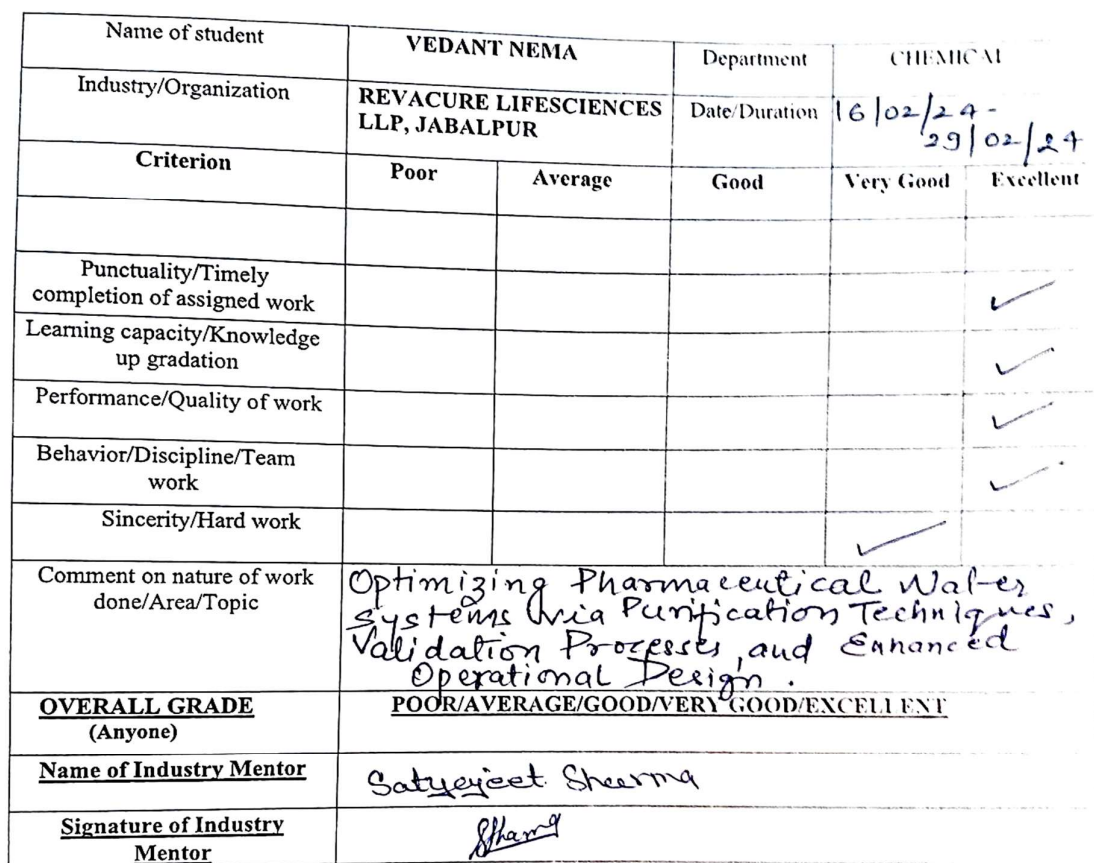 Name of student VEDANT NEMA Department CHEMICAL
Industry/Organization REVACURE LIFESCIENCES Date/Duration 16/02/24 -
LLP, JABALPUR 29/02/24
Criterion Poor Average Good Very Good Excellent
Punctuality/Timely
completion of assigned work ✓
Learning capacity/Knowledge
up gradation ✓
Performance/Quality of work ✓
Behavior/Discipline/Team
work ✓
Sincerity/Hard work ✓
Comment on nature of work Optimizing Pharmaceutical Water
done/Area/Topic Systems via Purification Techniques,
Validation Processes, and Enhanced
Operational Design.
OVERALL GRADE POOR/AVERAGE/GOOD/VERY GOOD/EXCELLENT
(Anyone)
Name of Industry Mentor Satyejeet Sharma
Signature of Industry
Mentor